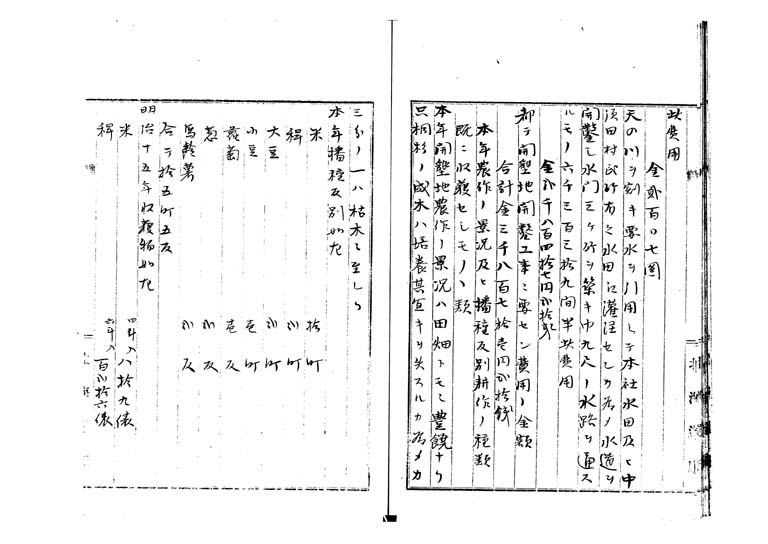 此費用
金貳百〇七圓
天の川ヲ割キ要水ヲ引用シテ本社水田及ヒ中
須田村民所有之水田ニ灌注セシカ為メ水道ヲ
開鑿シ水門三ケ所ヲ築キ巾九尺ノ水路ヲ通ス
ルモノ六千三百三拾九間半此費用
金貳千八百四拾七円貳拾銭
都テ開墾地開鑿工事ニ要セシ費用ノ金額
合計金三千八百七拾壱円貳拾銭
本年農作ノ景況及ヒ播種反別耕作ノ種類
既ニ収穫セシモノヽ類
本年開墾地農作ノ景況ハ田畑トモニ豊饒ナリ
只桐杉ノ成木ハ培養其宜キヲ失スルカ為メカ
三分ノ一ハ枯木ニ至レリ
本年播種反別如左
米 拾町
稗 貳町
大豆 貳町
小豆 壱町
蘿蔔 壱反
葱 貳反
馬鈴薯 貳反
合テ拾五町五反
明治十五年収穫物如左
米 四斗入 八拾九俵
稗 六斗入 百貳拾六俵